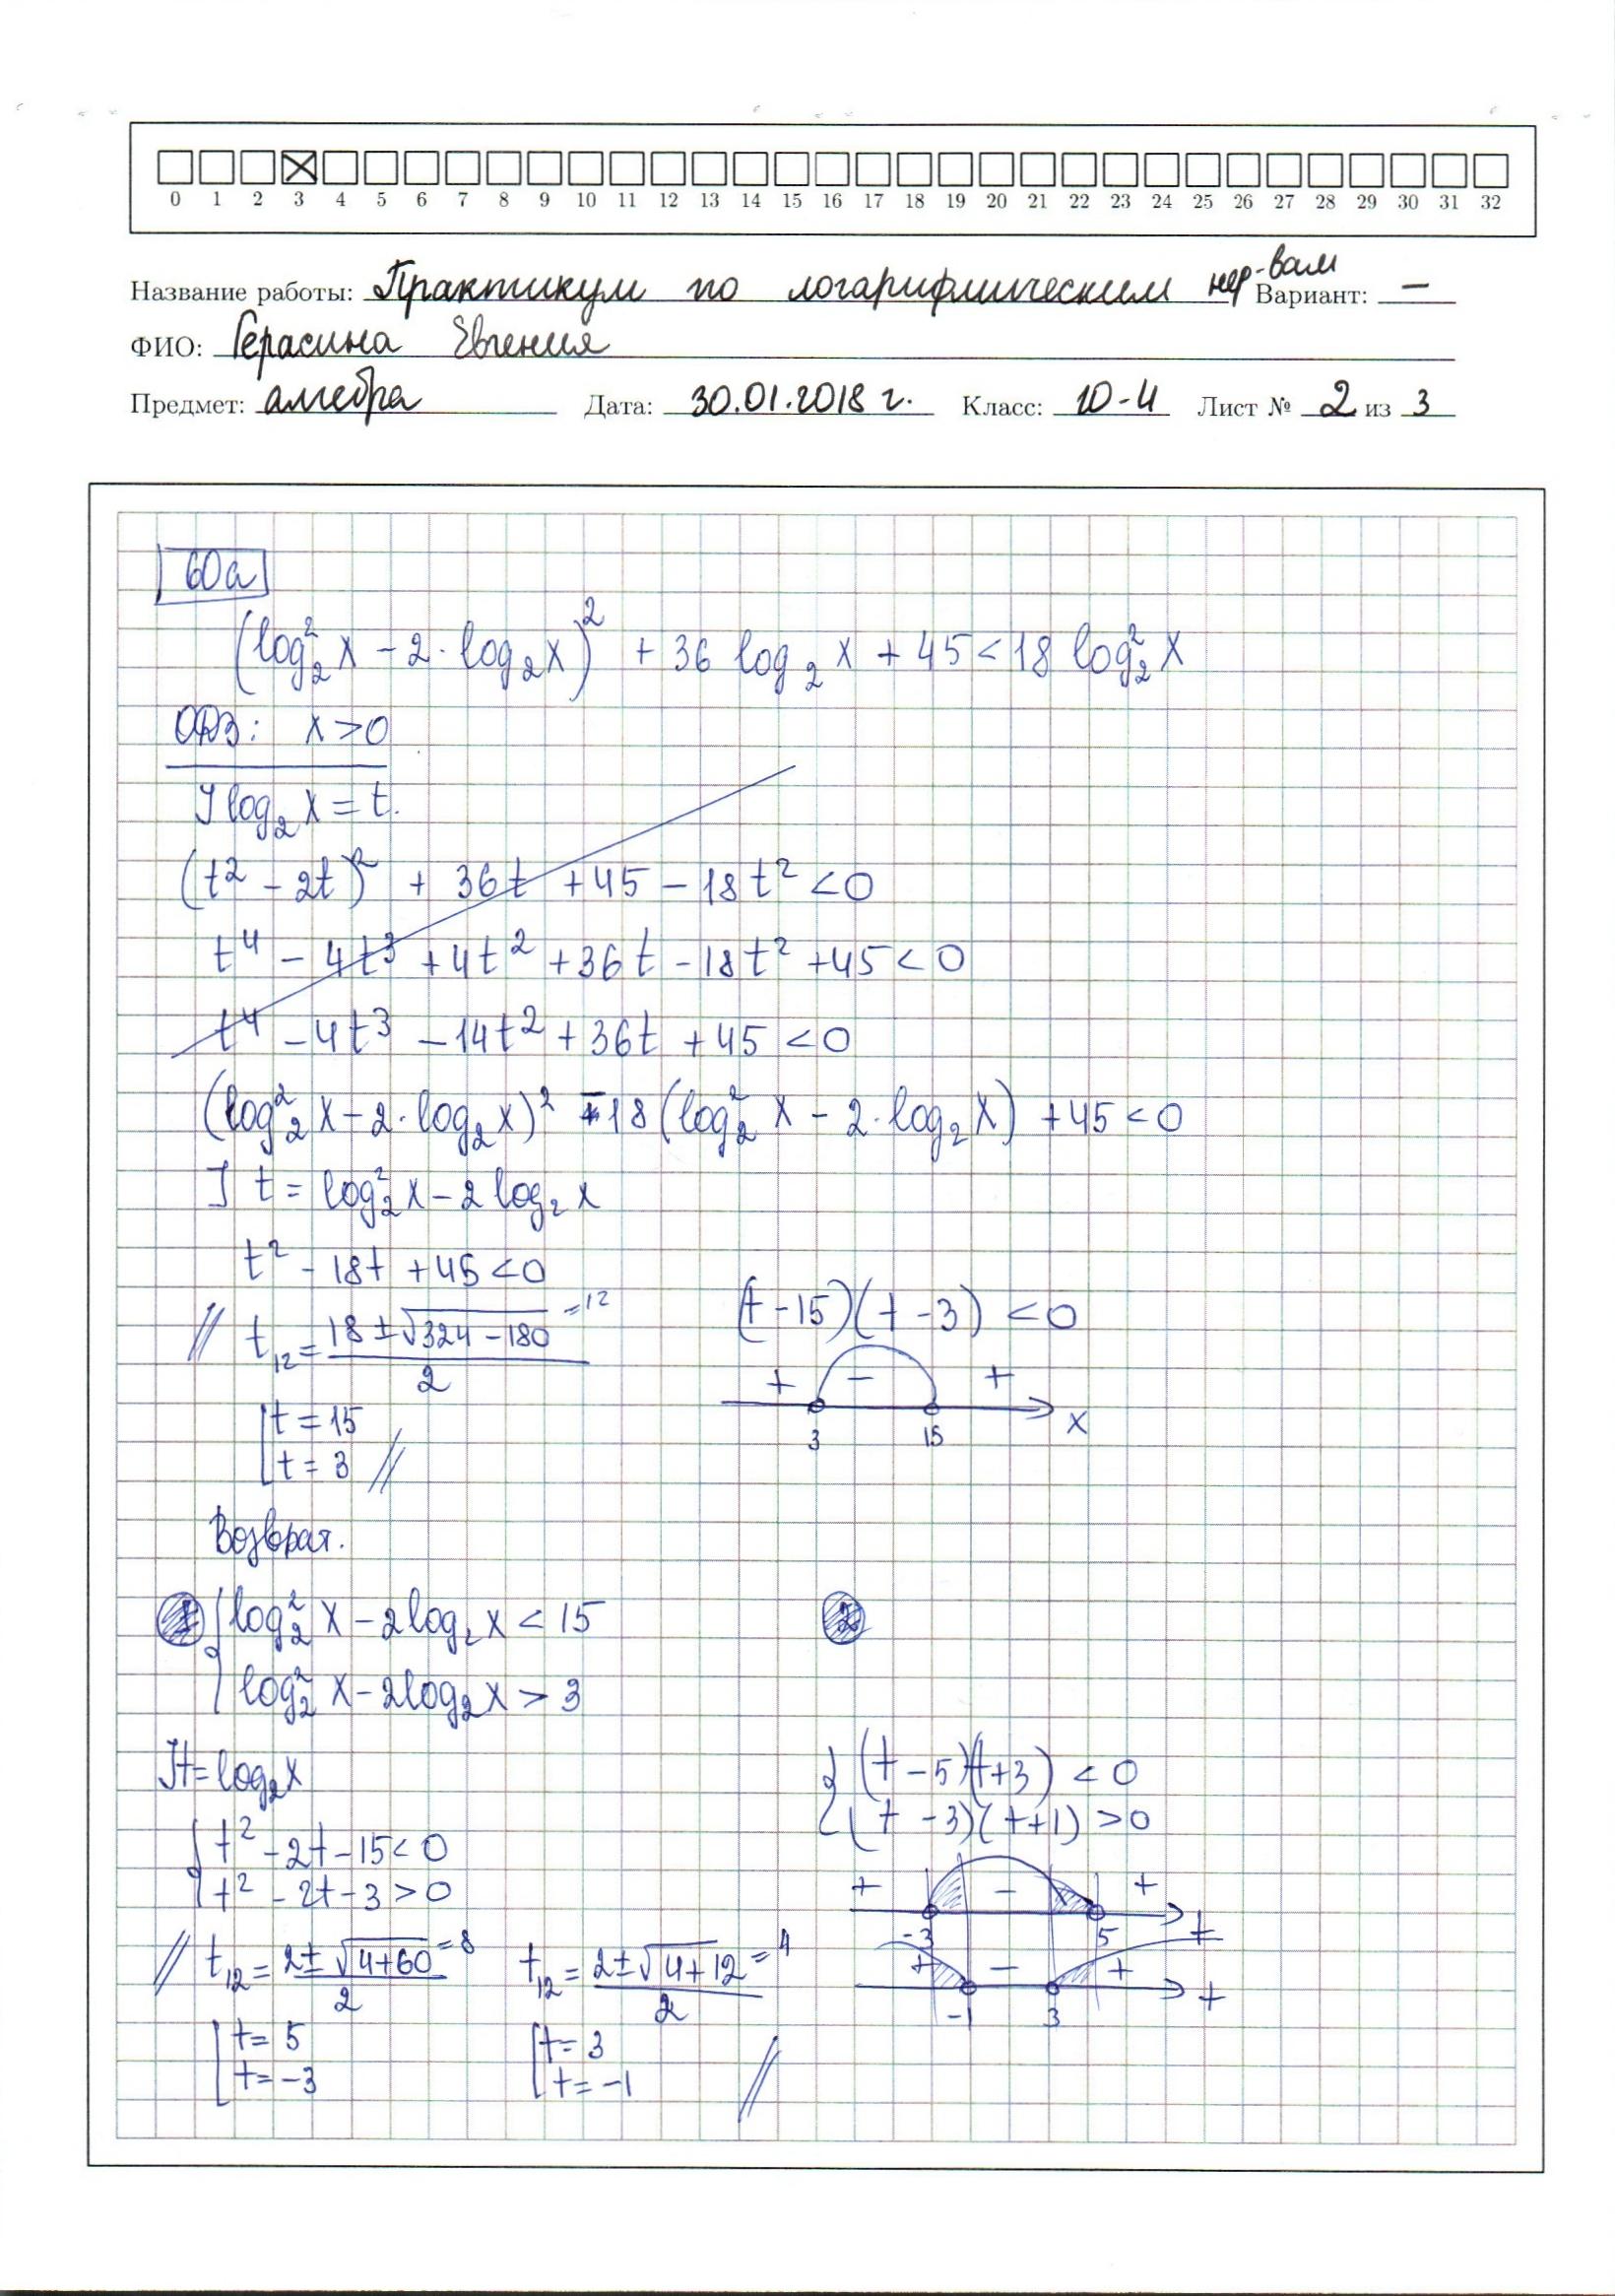 0 1 2 3 4 5 6 7 8 9 10 11 12 13 14 15 16 17 18 19 20 21 22 23 24 25 26 27 28 29 30 31 32
Название работы: Практикум по логарифмическим нер-вам Вариант: —
ФИО: Герасина Евгения
Предмет: алгебра Дата: 30.01.2018 г. Класс: 10-4 Лист № 2 из 3
60а
(log₂²x − 2·log₂x)² + 36 log₂x + 45 < 18 log₂²x
ОДЗ: x > 0
J log₂x = t.
(t² − 2t)² + 36t + 45 − 18t² < 0
t⁴ − 4t³ + 4t² + 36t − 18t² + 45 < 0
t⁴ − 4t³ − 14t² + 36t + 45 < 0
(log₂²x − 2·log₂x)² − 18(log₂²x − 2·log₂x) + 45 < 0
J t = log₂²x − 2log₂x
t² − 18t + 45 < 0
// t₁₂ = (18 ± √(324 − 180) = 12) / 2
[ t = 15
t = 3 //
(t − 15)(t − 3) < 0
+ − +
3 15 x
Возврат.
1 { log₂²x − 2log₂x < 15
log₂²x − 2log₂x > 3
2
J t = log₂x
{ t² − 2t − 15 < 0
t² − 2t − 3 > 0
// t₁₂ = (2 ± √(4+60) = 8) / 2 t₁₂ = (2 ± √(4+12) = 4) / 2
[ t = 5 [ t = 3
t = −3 t = −1 //
{ (t − 5)(t + 3) < 0
(t − 3)(t + 1) > 0
+ − +
−3 5 t
+ − +
−1 3 t